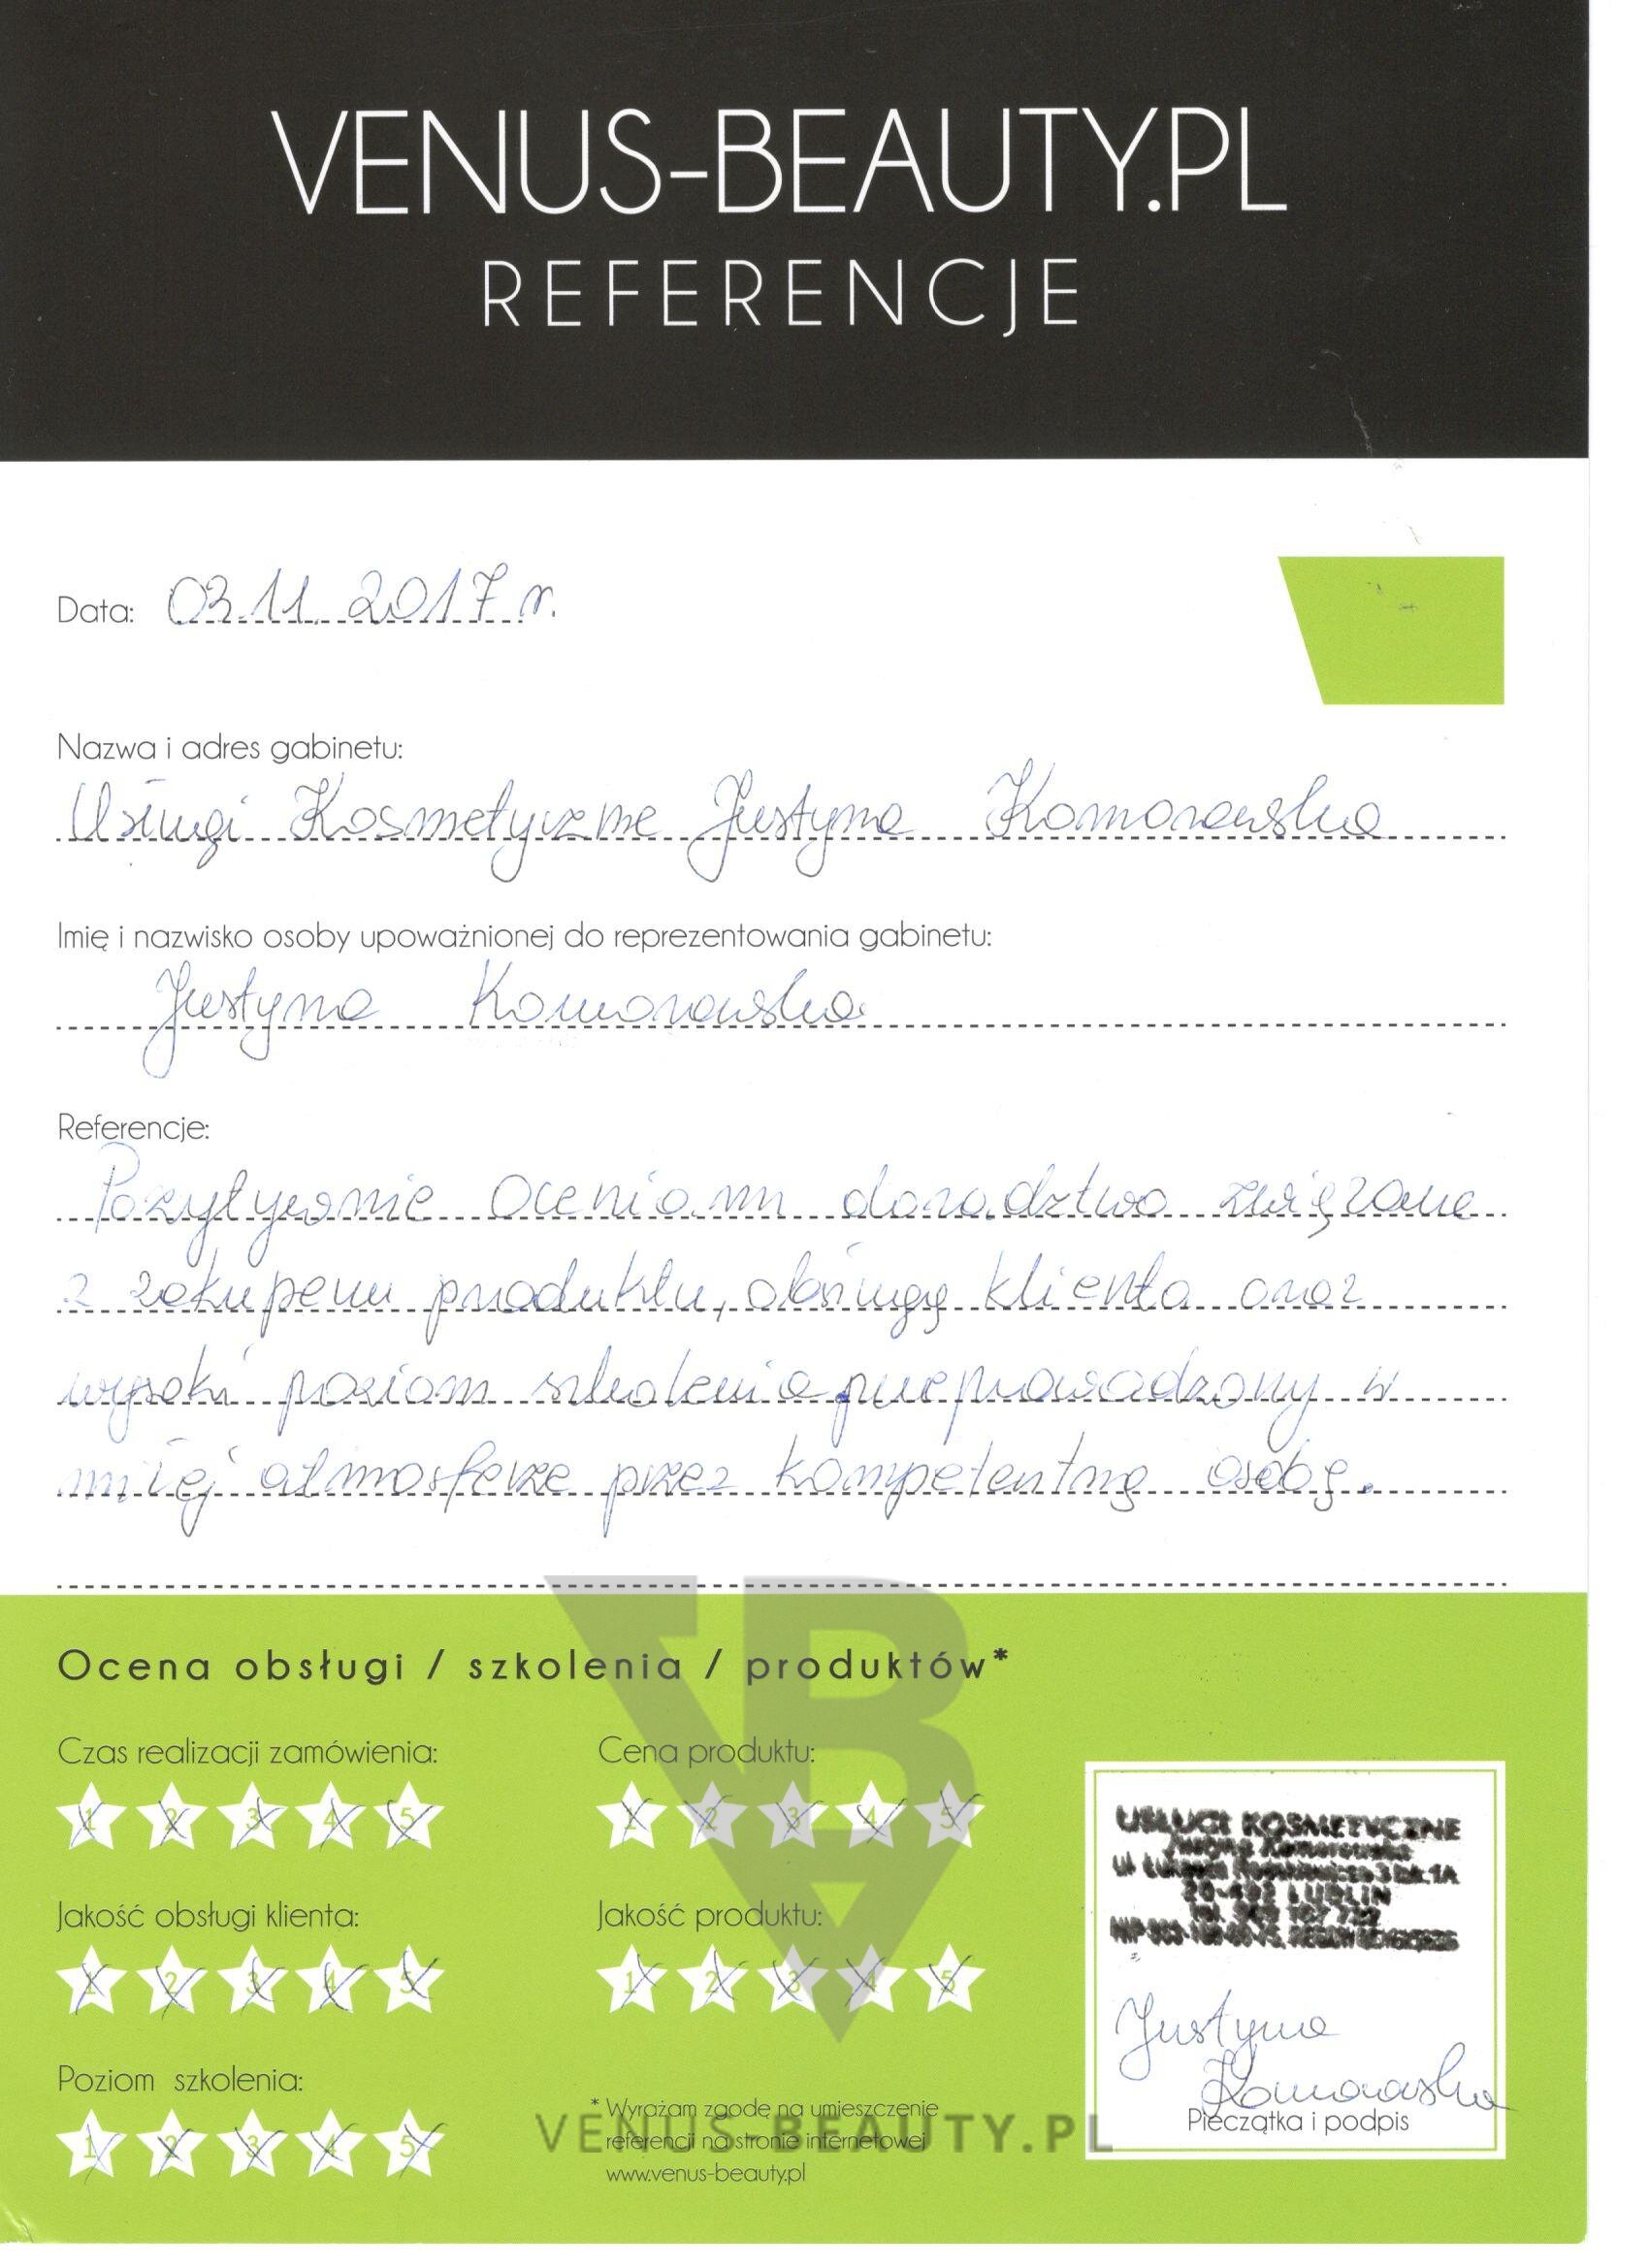 VENUS-BEAUTY.PL
REFERENCJE
Data: 03.11.2017 r.
Nazwa i adres gabinetu:
Usługi Kosmetyczne Justyna Komorowska
Imię i nazwisko osoby upoważnionej do reprezentowania gabinetu:
Justyna Komorowska
Referencje:
Pozytywnie oceniam doradztwo związane
z zakupem produktu, obsługę klienta oraz
wysoki poziom szkolenia przeprowadzony w
miłej atmosferze przez kompetentną osobę.
Ocena obsługi / szkolenia / produktów*
Czas realizacji zamówienia:
1 2 3 4 5
Cena produktu:
1 2 3 4 5
Jakość obsługi klienta:
1 2 3 4 5
Jakość produktu:
1 2 3 4 5
Poziom szkolenia:
1 2 3 4 5
* Wyrażam zgodę na umieszczenie
referencji na stronie internetowej
www.venus-beauty.pl
VENUS-BEAUTY.PL
USŁUGI KOSMETYCZNE
Justyna Komorowska
LUBLIN
Justyna
Komorowska
Pieczątka i podpis